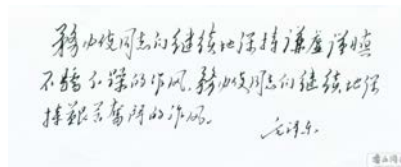 務必使同志们继续地保持谦虚谨慎
不骄不躁的作风,務必使同志们继续地保
持艰苦奋鬥的作风。
毛泽东